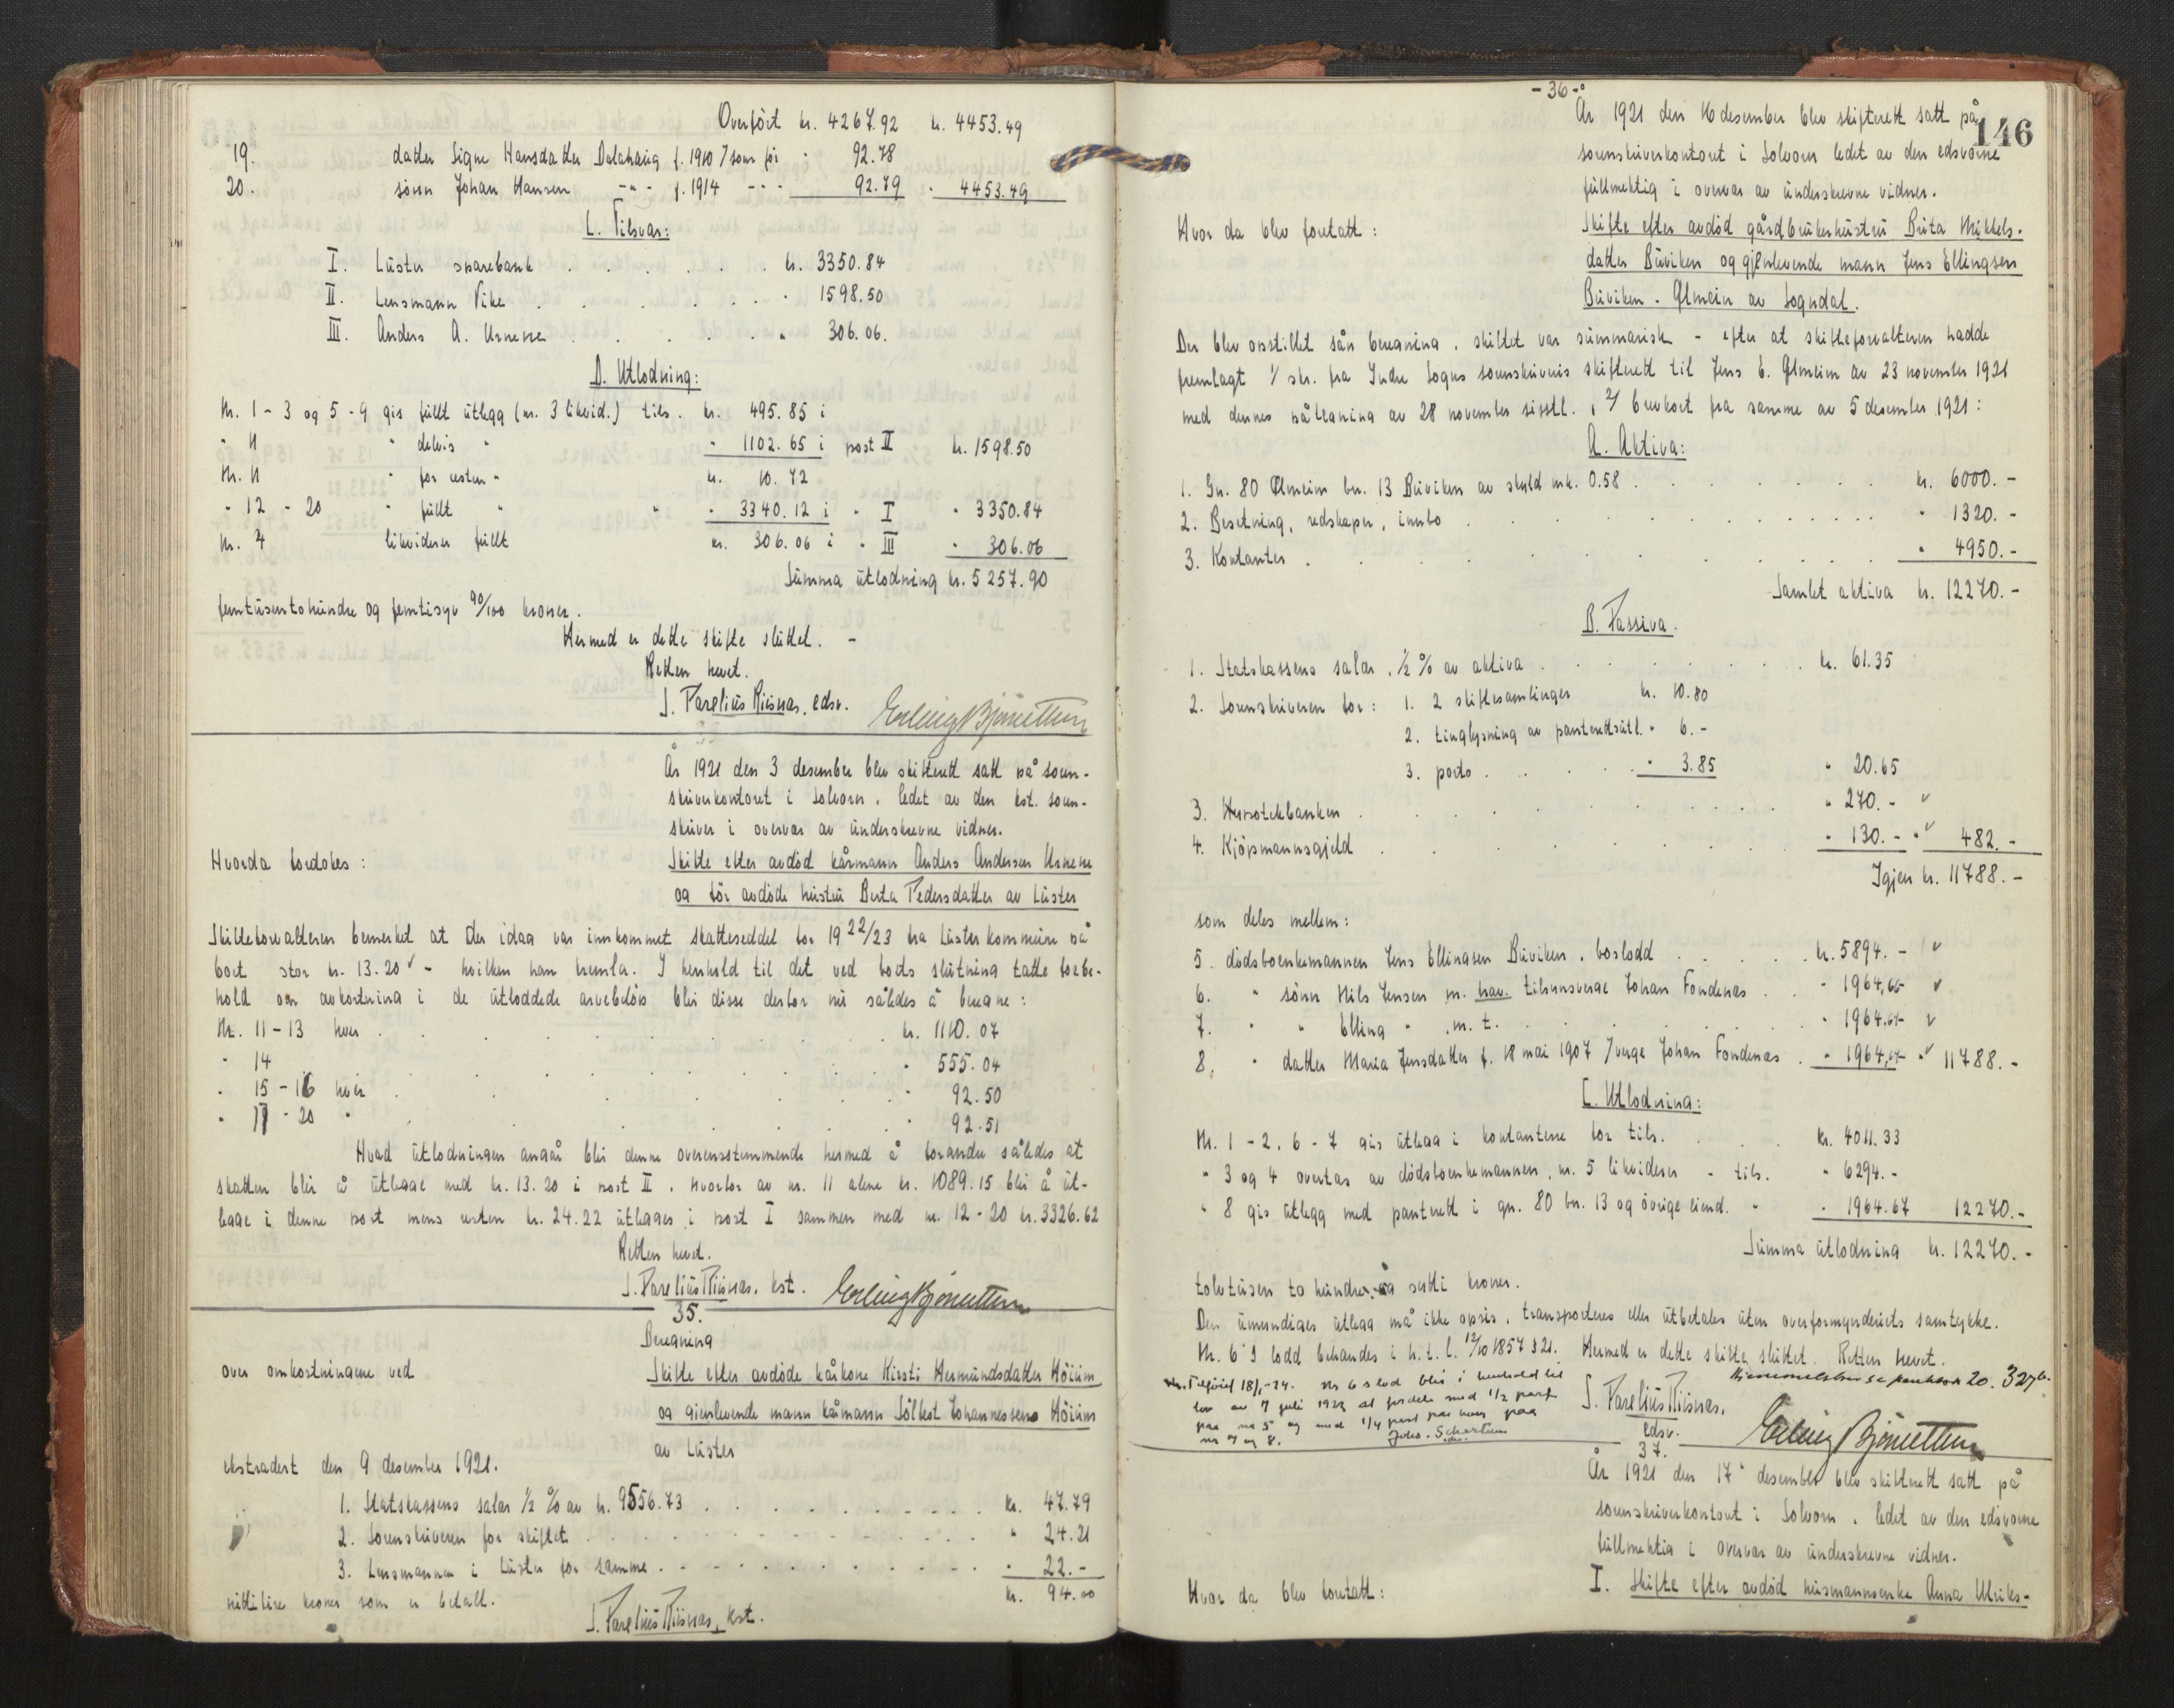 Overført kr. 4267.92 kr. 4453.49
19. datter Signe Hansdatter Dalahaug f. 1910 / som før " 92.78
20. sönn Johan Hansen -"- f. 1914 - - - 92.79 " 4453.49
C. Tilsvar:
I. Lüster sparebank . . . . . . kr. 3350.84
II. Lensmann Vike . . . . . . " 1598.50
III. Anders A. Urnene . . . . . " 306.06.
D. Utlodning:
Nr. 1 - 3 og 5 - 9 gis füllt ütlegg (nr. 3 likvid.) tils. kr. 495.85 i
" 11 " delvis " " 1102.65 i post II kr. 1598.50
Nr. 11 " for resten " kr. 10.72
" 12 - 20 " füllt " " " 3340.12 i " I " 3350.84
Nr. 4 likviderer füllt kr. 306.06 i " III " 306.06
Sümma ütlodning kr. 5257.90
femtüsentohündre og femtisyv 90/100 kroner.
Hermed er dette skifte slüttet. -
Retten hevet.
J. Parelius Riisnas, edsv. Erling Bjönetthun
År 1921 den 3 desember blev skifterett satt på soren-
skriverkontoret i Solvorn, ledet av den kst. soren-
skriver i overvær av ünderskrevne vidner.
Hvorda foretokes: Skifte efter avdöd kårmann Anders Andersen Urnene
og för avdöde hüstrü Berta Pedersdatter av Lüster
Skifteforvalteren bemerket at der idag var innkommet skatteseddel for 1922/23 fra Lüster kommüne på
boet stor kr. 13.20 - hvilken han fremla. I henhold til det ved boets slütning tatte forbe-
hold om avkortning i de ütloddede arvebelöp blir disse derfor nü således å beregne:
Nr. 11 - 13 hver . . . . . . kr. 1110.07
" 14 . . . . . . " 555.04
" 15 - 16 hver . . . . . . " 92.50
" 17 - 20 " . . . . . . " 92.51
Hvad ütlodningen angår blir denne overensstemmende hermed å forandre således at
skatten blir å ütlegge med kr. 13.20 i post II, hvorfor av nr. 11 alene kr. 1089.15 blir å üt-
legge i denne post mens resten kr. 24.22 ütlegges i post I sammen med nr. 12 - 20 kr. 3326.62
Retten hevet.
J. Parelius Riisnas, kst. Erling Bjönetthun
35.
Beregning
over omkostningene ved Skifte efter avdöde kårkone Kirsti Hermündsdatter Höiüm
og gjenlevende mann kårmann Sölfest Johannessens Höiüm
av Lüster
ekstradert den 9 desember 1921.
1. Statskassens salær 1/2 % av kr. 9556.73 . . . . kr. 47.79
2. Sorenskriveren for skiftet . . . . " 24.21
3. Lensmannen i Lüster for samme . . . . " 22.-
nittifire kroner som er betalt. kr. 94.00
J. Parelius Riisnas, kst.
- 36 -
146
År 1921 den 16 desember blev skifterett satt på
sorenskriverkontoret i Solvorn ledet av den edsvorne
füllmektig i overvær av ünderskrevne vidner.
Hvor da blev foretatt: Skifte efter avdöd gårdbrükerhüstrü Brita Mikkels-
datter Büviken og gjenlevende mann Jens Ellingsen
Büviken - Ølmein av Sogndal.
Der blev opstillet sån beregning, skiftet var sümmarisk - efter at skifteforvalteren hadde
fremlagt 1/ skr. fra Indre Sogns sorenskriveris skifterett til Jens E. Ølmeim av 23 november 1921
med dennes påtegning av 28 november sisstl., 2/ brevkort fra samme av 5 desember 1921:
A. Aktiva:
1. Gn. 80 Ølmeim bn. 13 Büviken av skyld mk. 0.58 . . . . kr. 6000.-
2. Besetning, redskaper, innbo . . . . " 1320.-
3. Kontanter . . . . " 4950.-
Samlet aktiva kr. 12270.-
B. Passiva.
1. Statskassens salær, 1/2 % av aktiva . . . . kr. 61.35
2. Sorenskriveren for: 1. 2 skiftesamlinger kr. 10.80
2. tinglysning av panterettsütl. " 6.-
3. porto . . . . " 3.85 " 20.65
3. Hypotekbanken . . . . " 270.-
4. Kjöpmannsgjeld . . . . " 130.- " 482.-
Igjen kr. 11788.-
som deles mellem:
5. dödsboenkemannen Jens Ellingsen Büviken, boslodd . . . . kr. 5894.-
6. " sönn Nils Jensen m. hav. tilsynsverge Johan Fondenæs . . " 1964,66
7. " " Elling " , m. t. . . . . " 1964.67
8. " datter Maria Jensdatter f. 18 mai 1907 / verge Johan Fondenæs . " 1964,67 " 11788.-
C. Utlodning:
Nr. 1 - 2, 6 - 7 gis ütlegg i kontantene for tils. . . . kr. 4011.33
" 3 og 4 overtas av dödsboenkemannen, nr. 5 likviderer - tils. " 6294.-
" 8 gis ütlegg med panterett i gn. 80 bn. 13 og övrige eiend. " " 1964.67 12270.-
Sümma ütlodning kr. 12270.-
tolvtüsen to hündre og sytti kroner.
Den ümyndiges ütlegg må ikke opsis, transporteres eller ütbetales üten overformynderiets samtykke.
Nr. 6's lodd behandes i h. t. l. 12/10 1857 § 21. Hermed er dette skifte slüttet. Retten hevet.
Tilföiet 18/1-24. Nr 6 s lod blir i henhold til
lov av 7 juli 1923 at fordele med 1/2 part
paa nr 5 og med 1/4 part paa hver paa
nr 7 og 8.
20. 327
J. Parelius Riisnas,
edsv. Erling Bjönetthun
37.
År 1921 den 17 desember blev skifterett satt på
sorenskriverkontoret i Solvorn, ledet av den edsvorne
füllmektig i overvær av ünderskrevne vidner.
Hvor da blev foretatt: I. Skifte efter avdöd hüsmannsenke Anna Ulriks-